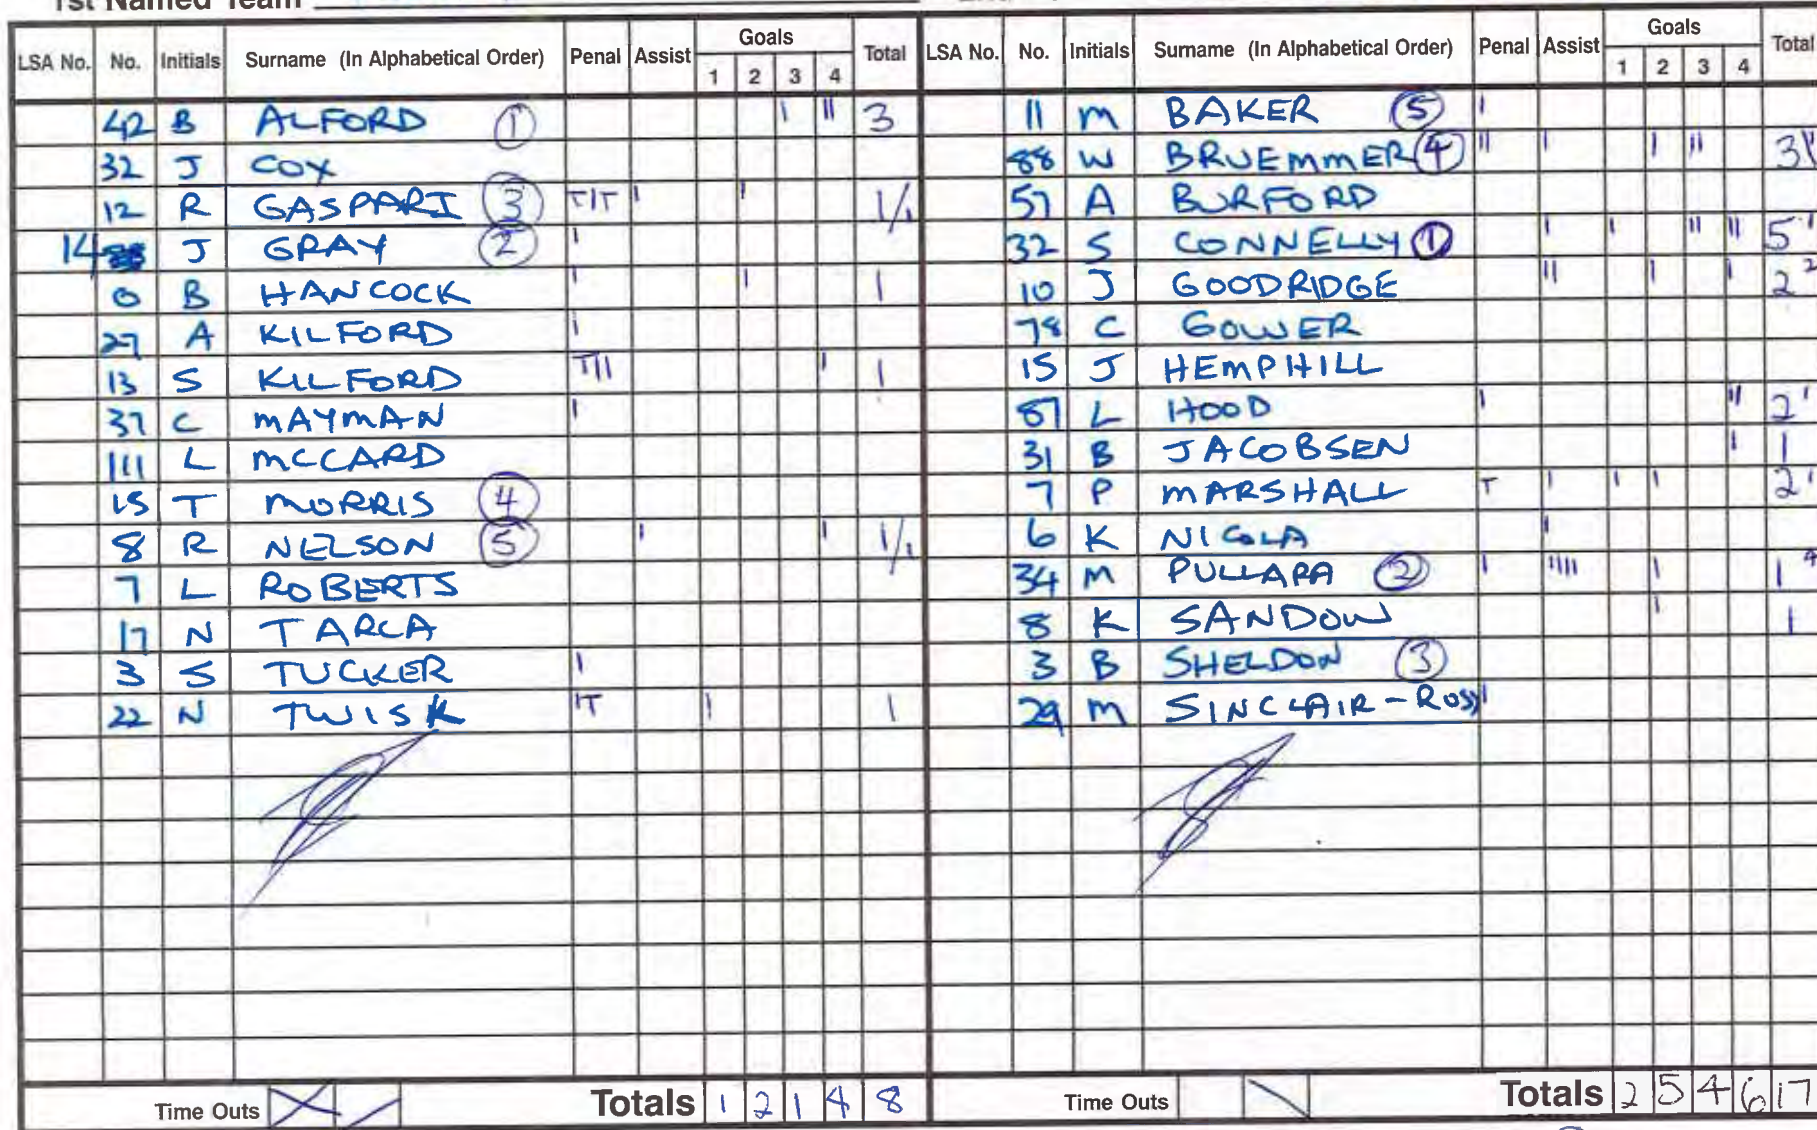 1st Named Team
LSA No. No. Initials Surname (In Alphabetical Order) Penal Assist Goals 1 2 3 4 Total
42 B ALFORD ① I II 3
32 J COX
12 R GASPARI ③ TIT I I 1/1
14 J GRAY ② I
0 B HANCOCK I I 1
27 A KILFORD I
13 S KILFORD TII I 1
37 C MAYMAN I
111 L MCCARD
15 T MORRIS ④
8 R NELSON ⑤ I I 1/1
7 L ROBERTS
17 N TARCA
3 S TUCKER I
22 N TWISK IT I 1
Time Outs Totals 1 2 1 4 8
LSA No. No. Initials Surname (In Alphabetical Order) Penal Assist Goals 1 2 3 4 Total
11 M BAKER ⑤ I
88 W BRUEMMER ④ II I I II 3
57 A BURFORD
32 S CONNELLY ① I I II II 5 1
10 J GOODRIDGE II I I 2 2
78 C GOWER
15 J HEMPHILL
87 L HOOD I II 2 1
31 B JACOBSEN I 1
7 P MARSHALL T I I I 2 1
6 K NICOLA I
34 M PULLARA ② I IIII I 1 4
8 K SANDOW I 1
3 B SHELDON ③
29 M SINCLAIR-ROSS I
Time Outs Totals 2 5 4 6 17